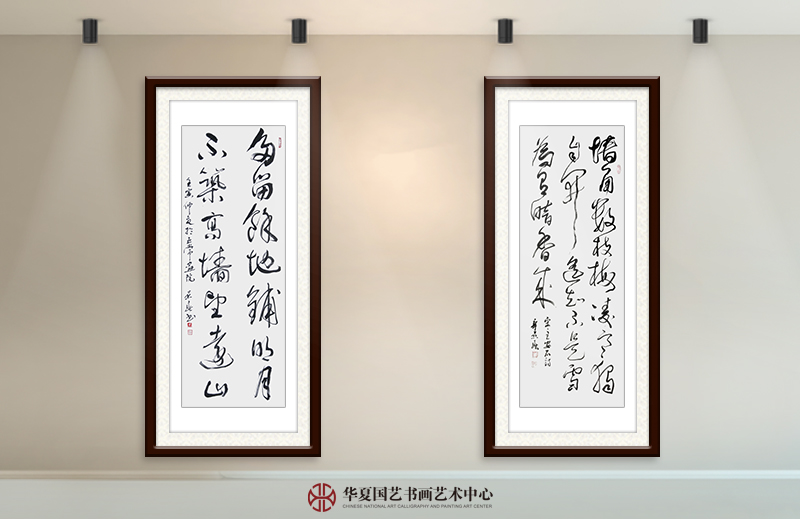 多留餘地鋪明月
不築高墻望遠山
墻角數枝梅凌寒獨
自開遥知不是雪
為有暗香來
宋王安石詩
华夏国艺书画艺术中心
CHINESE NATIONAL ART CALLIGRAPHY AND PAINTING ART CENTER